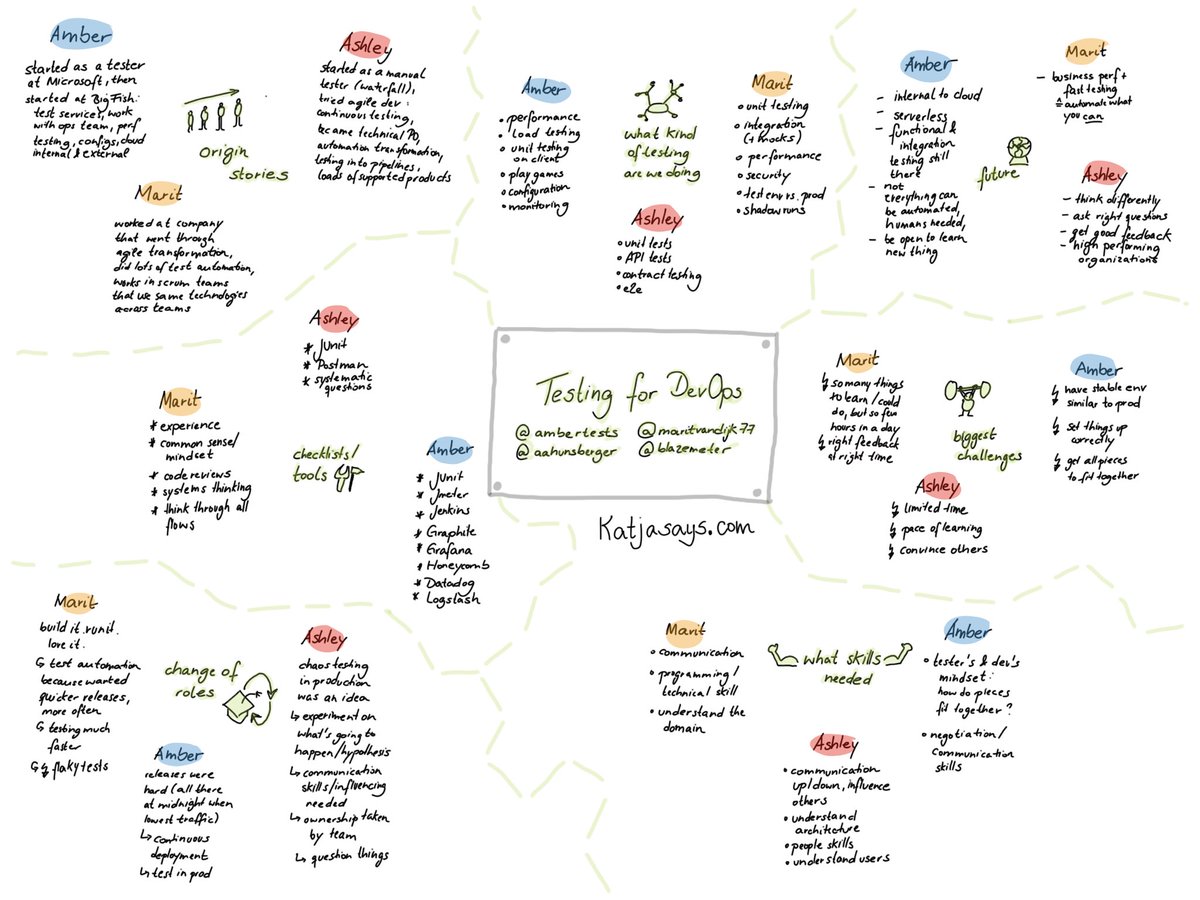 Amber
started as a tester
at Microsoft, then
started at BigFish:
test services, work
with ops team, perf
testing, configs, cloud
internal & external
origin
stories
Ashley
started as a manual
tester (waterfall),
tried agile dev:
continuous testing,
became technical PO,
automation transformation,
testing into pipelines,
loads of supported products
Marit
worked at company
that went through
agile transformation,
did lots of test automation,
works in scrum teams
that use same technologies
across teams
Amber
performance
load testing
unit testing
on client
play games
configuration
monitoring
what kind
of testing
are we doing
Marit
unit testing
integration
(+mocks)
performance
security
test env vs. prod
shadow runs
Ashley
unit tests
API tests
contract testing
e2e
Amber
- internal to cloud
- serverless
- functional &
integration
testing still
there
- not
everything can
be automated,
humans needed,
- be open to learn
new thing
future
Marit
- business perf +
fast testing
≙ automate what
you can
Ashley
- think differently
- ask right questions
- get good feedback
- high performing
organizations
Ashley
* Junit
* Postman
* systematic
questions
Marit
* experience
* common sense/
mindset
* code reviews
* systems thinking
* think through all
flows
checklists/
tools
Amber
* Junit
* Jmeter
* Jenkins
* Graphite
* Grafana
* Honeycomb
* Datadog
* Logstash
Testing for DevOps
@ambertests @maritvandijk77
@aahunsberger @blazemeter
Katjasays.com
Marit
so many things
to learn/could
do, but so few
hours in a day
right feedback
at right time
biggest
challenges
Amber
have stable env
similar to prod
set things up
correctly
get all pieces
to fit together
Ashley
limited time
pace of learning
convince others
Marit
build it. run it.
love it.
test automation
because wanted
quicker releases,
more often
testing much
faster
flaky tests
change of
roles
Amber
releases were
hard (all there
at midnight when
lowest traffic)
↳ continuous
deployment
↳ test in prod
Ashley
chaos testing
in production
was an idea
↳ experiment on
what's going to
happen/hypothesis
↳ communication
skills/influencing
needed
↳ ownership taken
by team
↳ question things
Marit
communication
programming/
technical skill
understand the
domain
what skills
needed
Amber
tester's & dev's
mindset:
how do pieces
fit together?
negotiation/
communication
skills
Ashley
communication
up/down, influence
others
understand
architecture
people skills
understand users